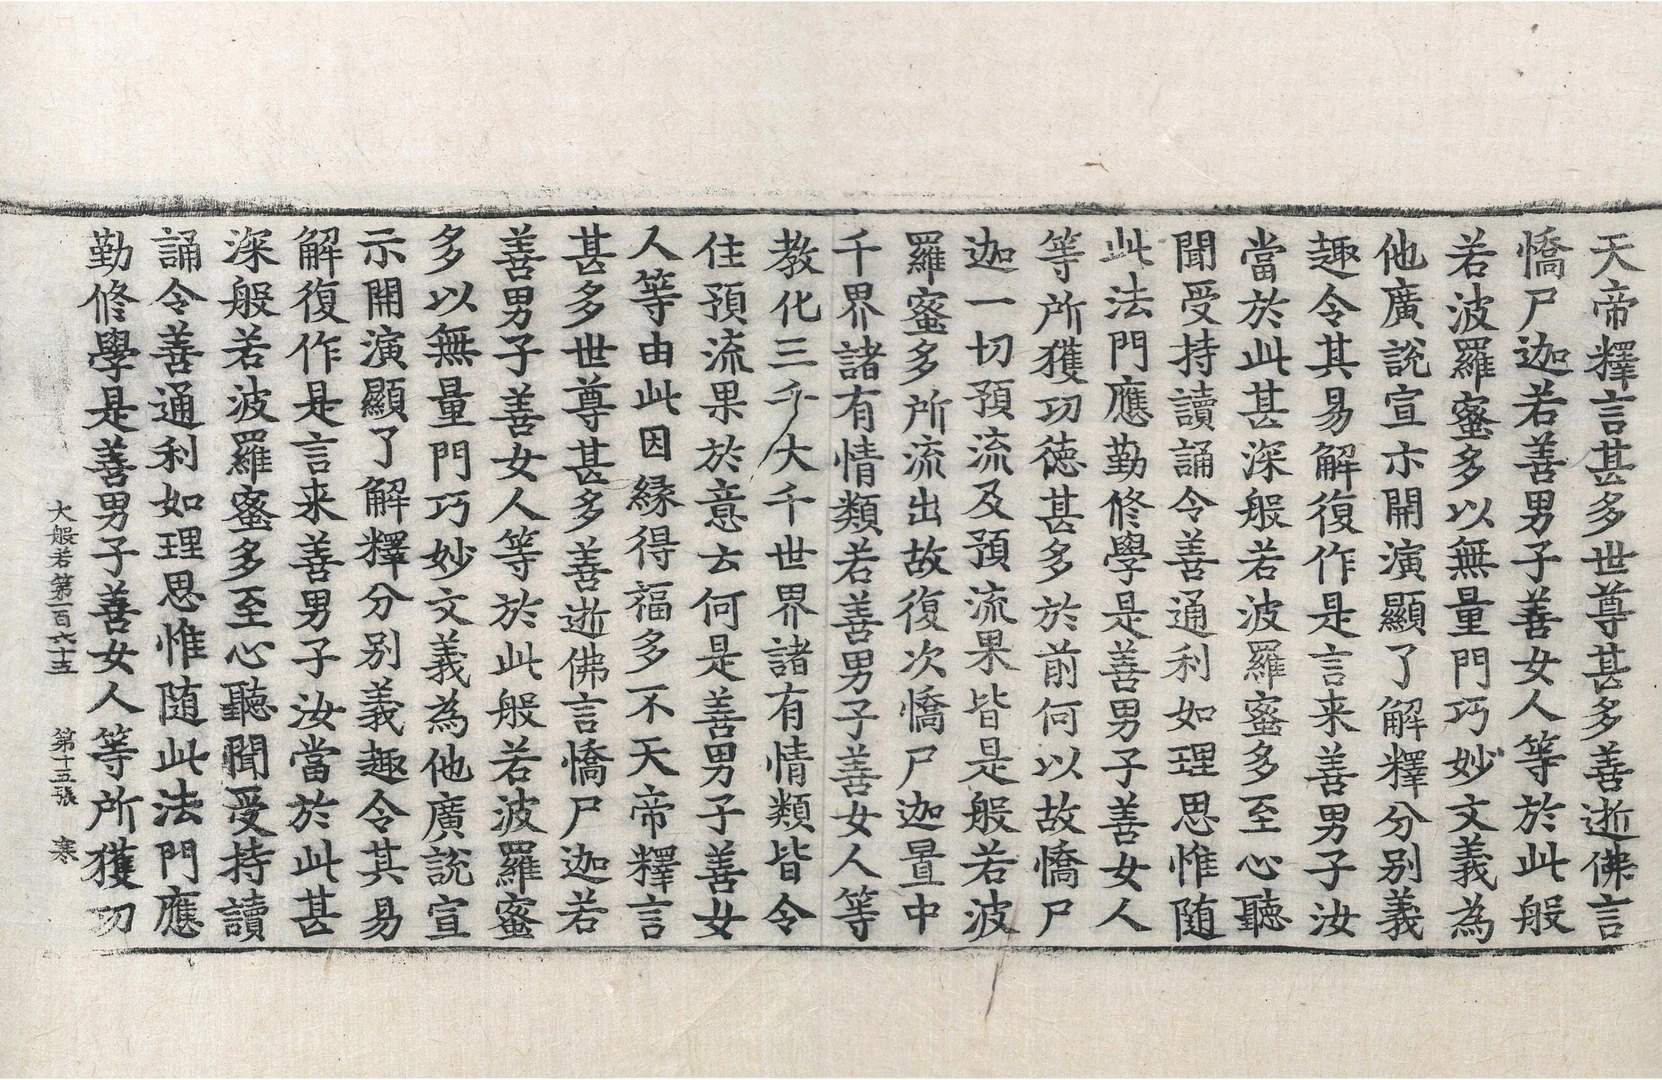 天帝釋言甚多世尊甚多善逝佛言
憍尸迦若善男子善女人等於此般
若波羅蜜多以無量門巧妙文義為
他廣說宣示開演顯了解釋分別義
趣令其易解復作是言来善男子汝
當於此甚深般若波羅蜜多至心聽
聞受持讀誦令善通利如理思惟随
此法門應勤修學是善男子善女人
等所獲功徳甚多於前何以故憍尸
迦一切預流及預流果皆是般若波
羅蜜多所流出故復次憍尸迦置中
千界諸有情類若善男子善女人等
教化三千大千世界諸有情類皆令
住預流果於意云何是善男子善女
人等由此因緣得福多不天帝釋言
甚多世尊甚多善逝佛言憍尸迦若
善男子善女人等於此般若波羅蜜
多以無量門巧妙文義為他廣說宣
示開演顯了解釋分別義趣令其易
解復作是言来善男子汝當於此甚
深般若波羅蜜多至心聽聞受持讀
誦令善通利如理思惟随此法門應
勤修學是善男子善女人等所獲功
大般若第一百六十五 第十五張 寒